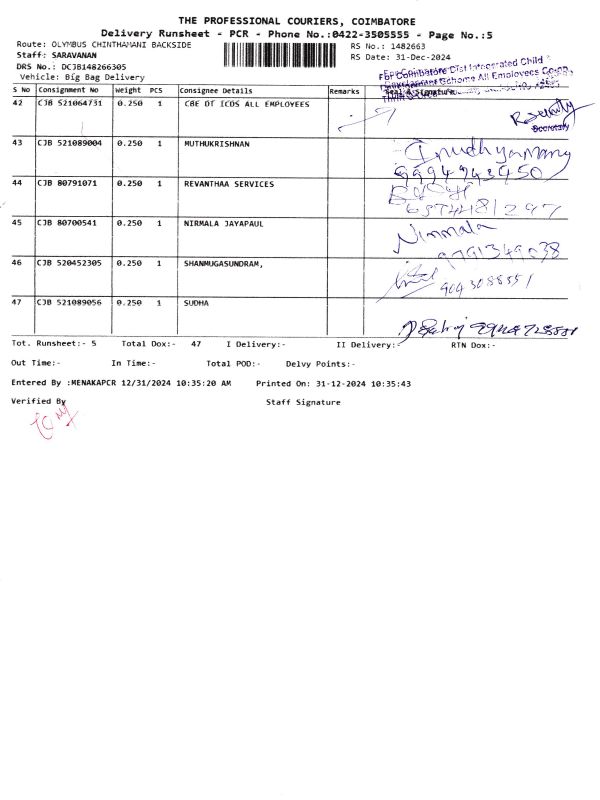 THE PROFESSIONAL COURIERS, COIMBATORE
Delivery Runsheet - PCR - Phone No.:0422-3505555 - Page No.:5
Route: OLYMBUS CHINTHAMANI BACKSIDE
RS No.: 1482663
Staff: SARAVANAN
RS Date: 31-Dec-2024
DRS No.: DCJB148266305
Vehicle: Big Bag Delivery
For Coimbatore Dist Integrated Child
Development Scheme All Employees Co-op
S No Consignment No Weight PCS Consignee Details Remarks Seal & Signature
42 CJB 521064731 0.250 1 CBE DT ICDS ALL EMPLOYEES
Secretary
43 CJB 521089004 0.250 1 MUTHUKRISHNAN
9994943450
44 CJB 80791071 0.250 1 REVANTHAA SERVICES
45 CJB 80700541 0.250 1 NIRMALA JAYAPAUL Nirmala
9791349038
46 CJB 520452305 0.250 1 SHANMUGASUNDRAM,
47 CJB 521089056 0.250 1 SUDHA
Tot. Runsheet:- 5 Total Dox:- 47 I Delivery:- II Delivery:- RTN Dox:-
Out Time:- In Time:- Total POD:- Delvy Points:-
Entered By :MENAKAPCR 12/31/2024 10:35:20 AM Printed On: 31-12-2024 10:35:43
Verified By Staff Signature